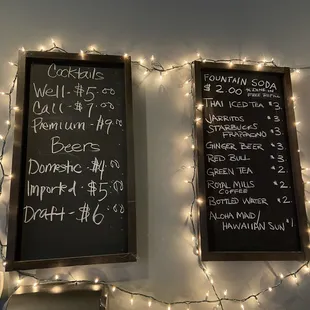 Cocktails
Well - $5.00
Call - $7.00
Premium - $9.00
Beers
Domestic - $4.00
Imported - $5.00
Draft - $6.00
Fountain Soda
$2.00
Free Refill
Thai Iced Tea $3
Jarritos $3
Starbucks $3
Frapaccino
Ginger Beer $3
Red Bull $3
Green Tea $2
Royal Mills $2
Coffee
Bottled Water $2
Aloha Maid/
Hawaiian Sun $1